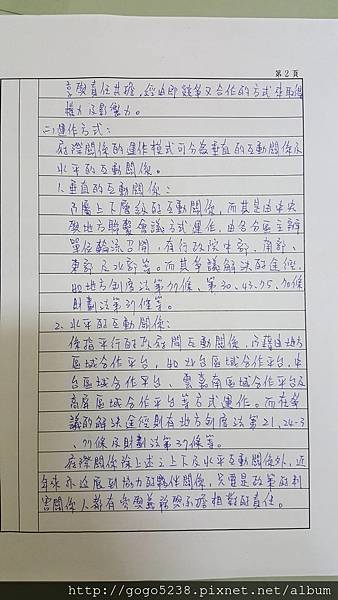 第2頁
享與責任共擔,經由即競爭又合作的方式來取得
權力及影響力。
(二)運作方式:
府際關係的運作模式可分為垂直的互動關係及
水平的互動關係。
1.垂直的互動關係:
乃屬上下層級的互動關係,而其是由中央
與地方聯繫會議方式運作,由各分區主辦
單位輪流召開,有行政院中部、南部、
東部及北部等。而其爭議解決的途徑,
如地方制度法第77條、第30、43、75、76條
財劃法第31條等。
2.水平的互動關係:
係指平行的政府間互動關係,乃藉由地方
區域合作平台,如北台區域合作平台、中
台區域合作平台、雲嘉南區域合作平台及
高屏區域合作平台等方式運作。而在爭
議的解決途徑則有地方制度法第21、24-3
、77條及財劃法第31條等。
府際關係除上述之上下及水平互動關係外,近
年來亦延展到協力的夥伴關係,只要是政策的利
害關係人都有參與並
擔相對的責任。
http://gogo5238.pixnet.net/album